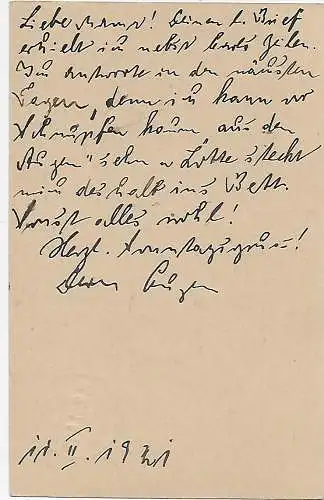 Liebe Mama! Deinen l. Brief
erhielt ich nebst Zeilen.
Ich antworte in den nächsten
Tagen, denn ich kann vor
Schnupfen kaum aus den
Augen" sehn u Lotte steckt
mich deshalb ins Bett.
Sonst alles wohl!
Herzl. Sonntagsgruss!
Dein Eugen
11. II. 19